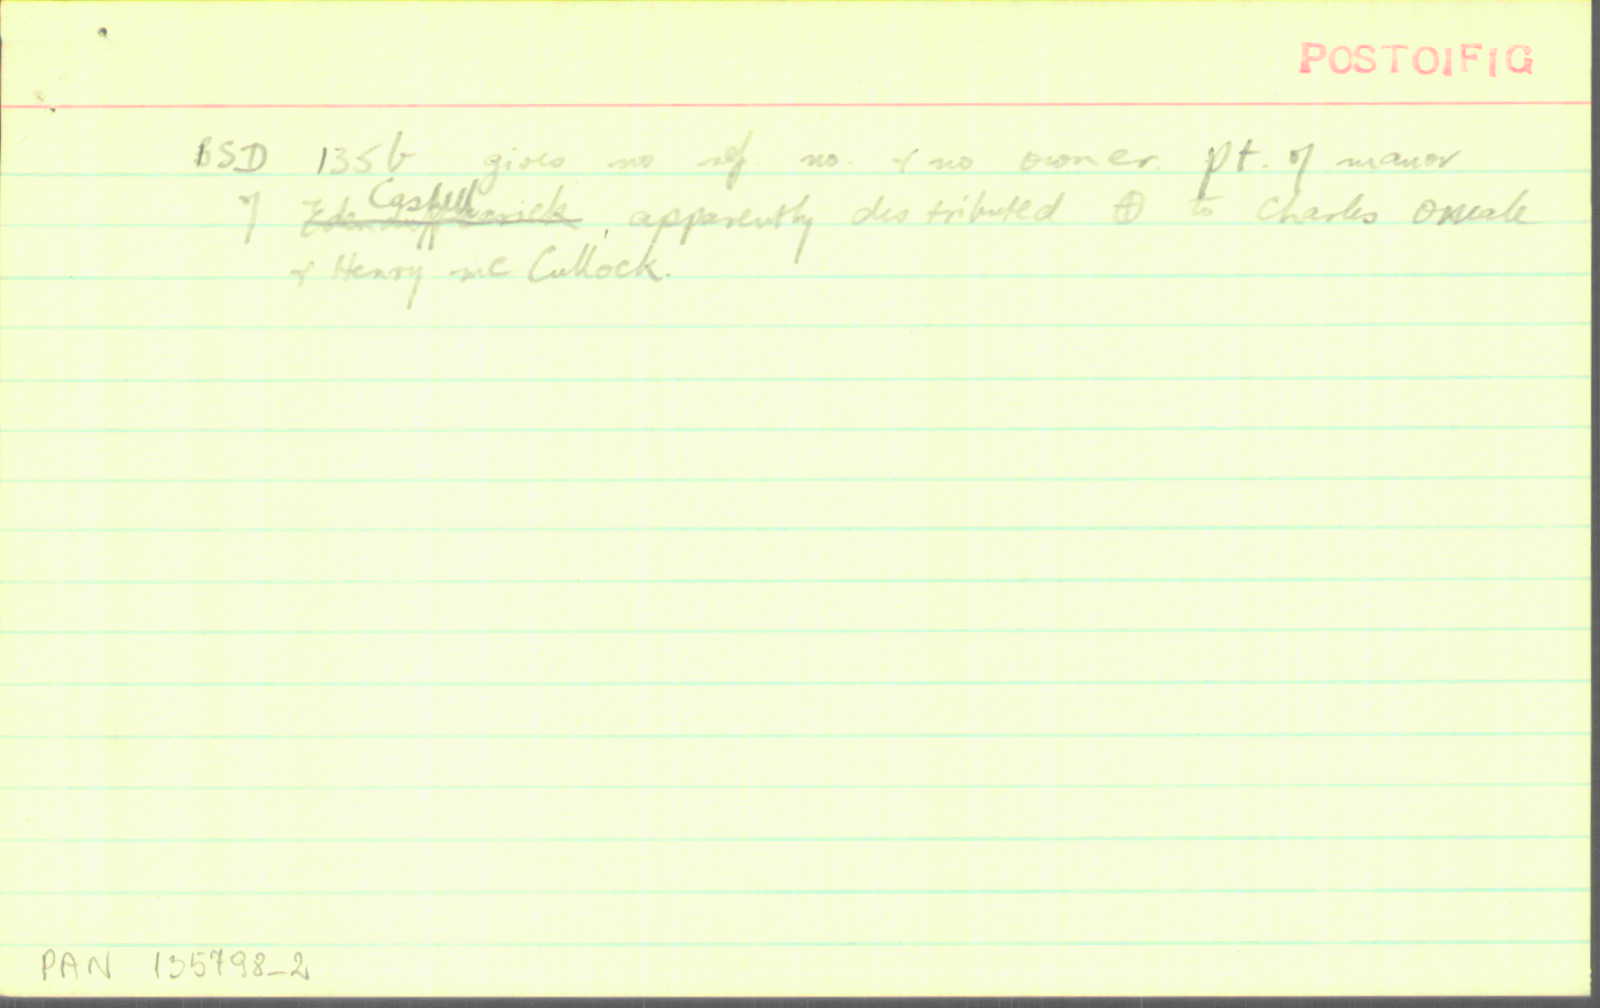 POSTOIFIG
BSD 135b gives no ref. no. & no owner. pt. of manor
of Castell apparently distributed ⊕ to Charles Oneale
& Henry mc Cullock.
PAN 135798-2